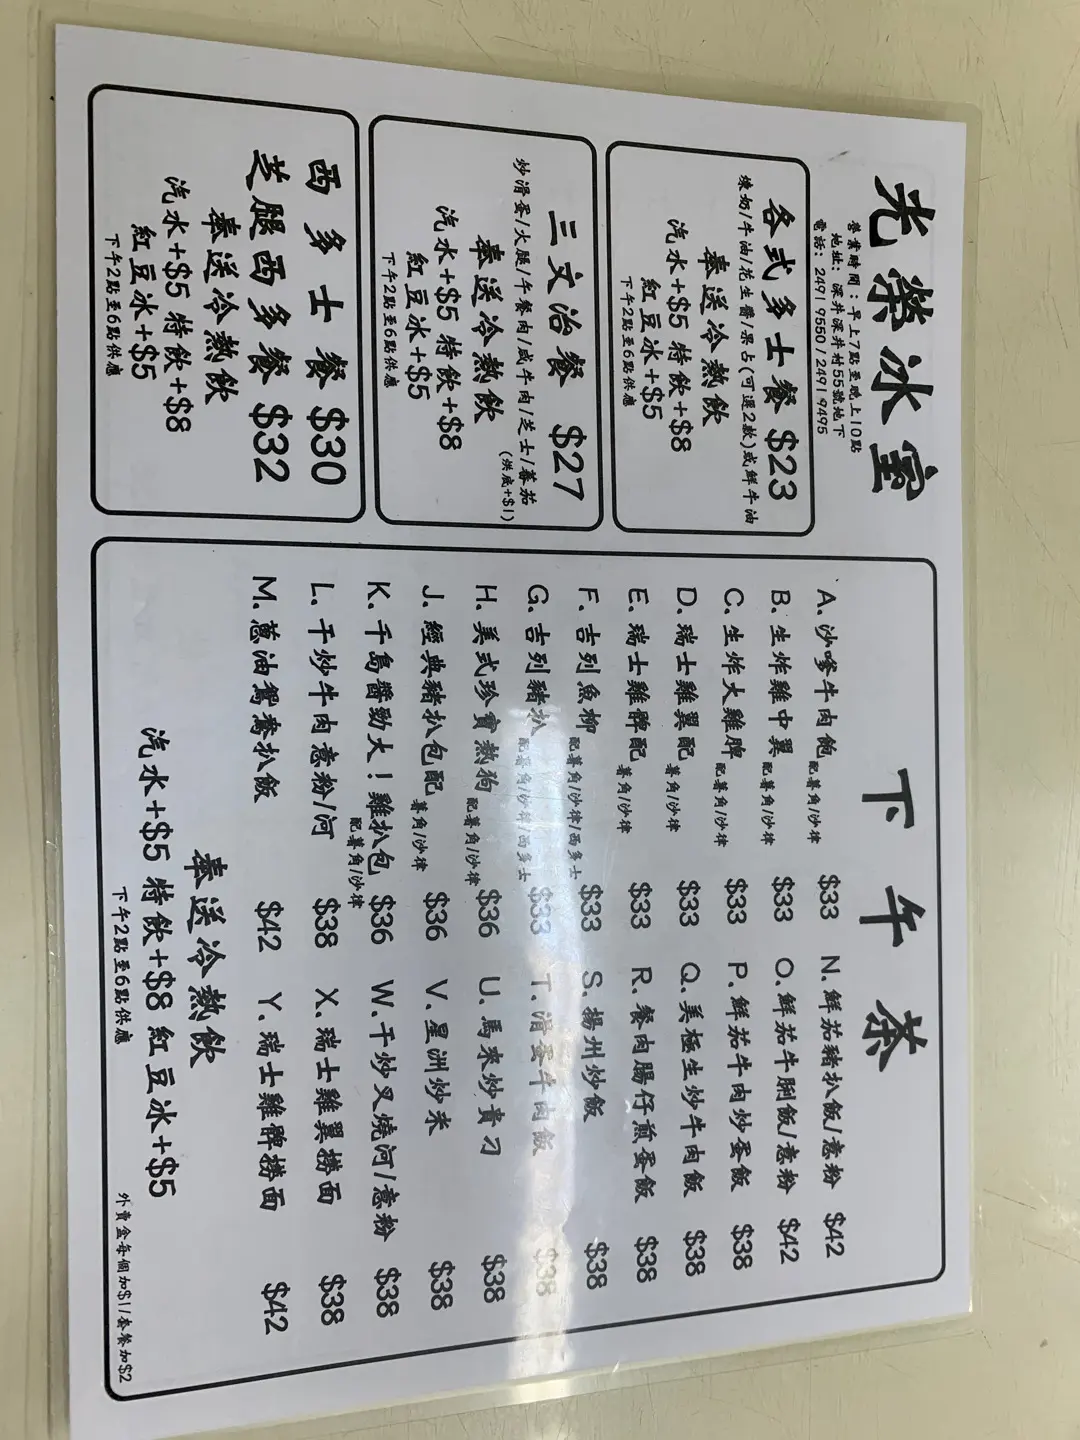 光榮冰室
營業時間：早上7點至晚上10點
地址: 深井深井村55號地下
電話: 2491 9550/2491 9495
各式多士餐 $23
煉奶/牛油/花生醬/果占(可選2款)或鮮牛油
奉送冷熱飲
汽水+$5 特飲+$8
紅豆冰+$5
下午2點至6點供應
三文治餐 $27
炒滑蛋/火腿/午餐肉/咸牛肉/芝士/蕃茄
(烘底+$1)
奉送冷熱飲
汽水+$5 特飲+$8
紅豆冰+$5
下午2點至6點供應
西多士餐 $30
芝腿西多餐 $32
奉送冷熱飲
汽水+$5 特飲+$8
紅豆冰+$5
下午2點至6點供應
下午茶
A. 沙爹牛肉飽 配薯角/沙律 $33
B. 生炸雞中翼 配薯角/沙律 $33
C. 生炸大雞脾 配薯角/沙律 $33
D. 瑞士雞翼配 薯角/沙律 $33
E. 瑞士雞髀配 薯角/沙律 $33
F. 吉列魚柳 配薯角/沙律/西多士 $33
G. 吉列豬扒 配薯角/沙律/西多士 $33
H. 美式珍寶熱狗 配薯角/沙律 $36
J. 經典豬扒包配 薯角/沙律 $36
K. 千島醬勁大！雞扒包 配薯角/沙律 $36
L. 干炒牛肉意粉/河 $38
M. 蔥油鴛鴦扒飯 $42
N. 鮮茄豬扒飯/意粉 $42
O. 鮮茄牛脷飯/意粉 $42
P. 鮮茄牛肉炒蛋飯 $38
Q. 美極生炒牛肉飯 $38
R. 餐肉腸仔煎蛋飯 $38
S. 揚州炒飯 $38
T. 滑蛋牛肉飯 $38
U. 馬來炒貴刁 $38
V. 星洲炒米 $38
W. 干炒叉燒河/意粉 $38
X. 瑞士雞翼撈面 $38
Y. 瑞士雞髀撈面 $42
奉送冷熱飲
汽水+$5 特飲+$8 紅豆冰+$5
下午2點至6點供應
外賣盒每個加$1/套餐加$2